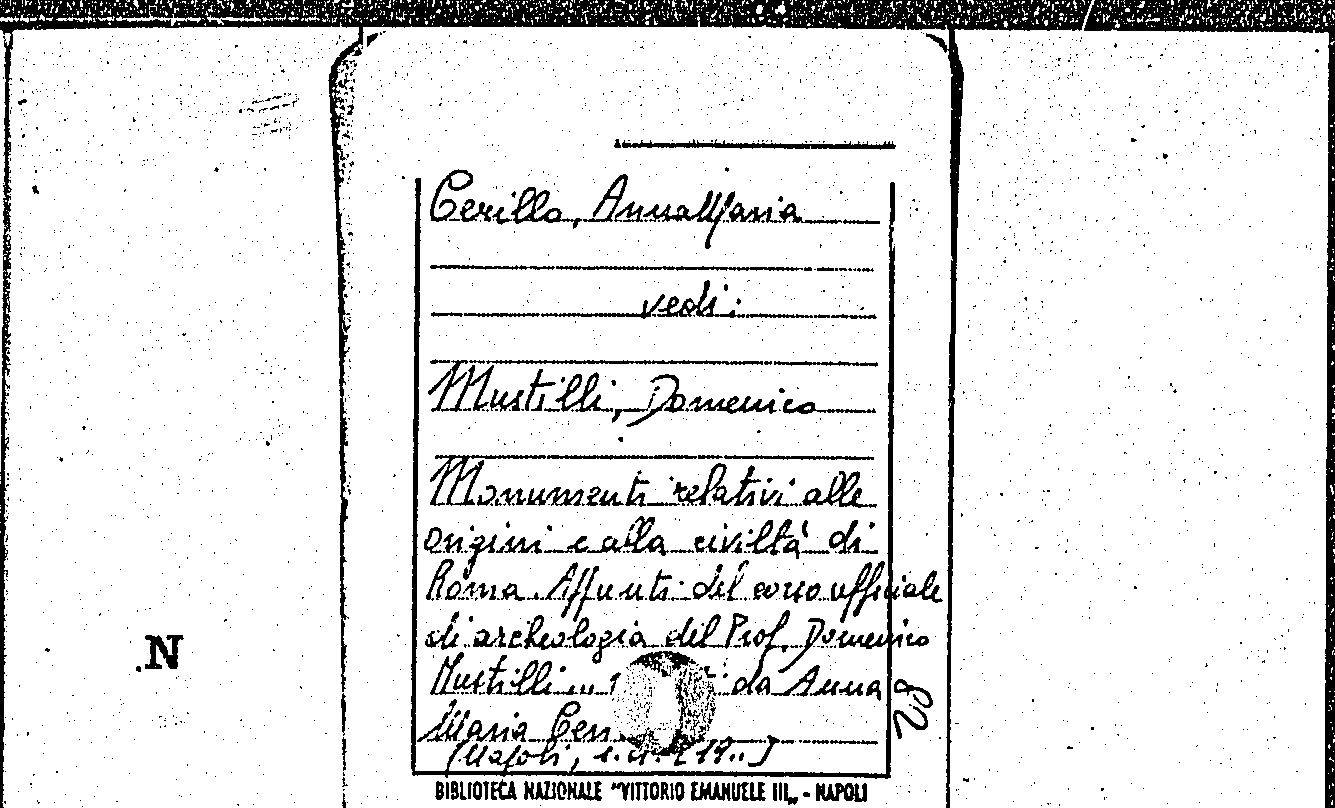 Cerillo, Anna Maria
vedi:
Mustilli, Domenico
Monumenti relativi alle
origini e alla civiltà di
Roma. Appunti del corso ufficiale
di archeologia del Prof. Domenico
Mustilli... da Anna
Maria Ceri
(Napoli, s. n. t. 19..]
BIBLIOTECA NAZIONALE "VITTORIO EMANUELE III„ - NAPOLI
N